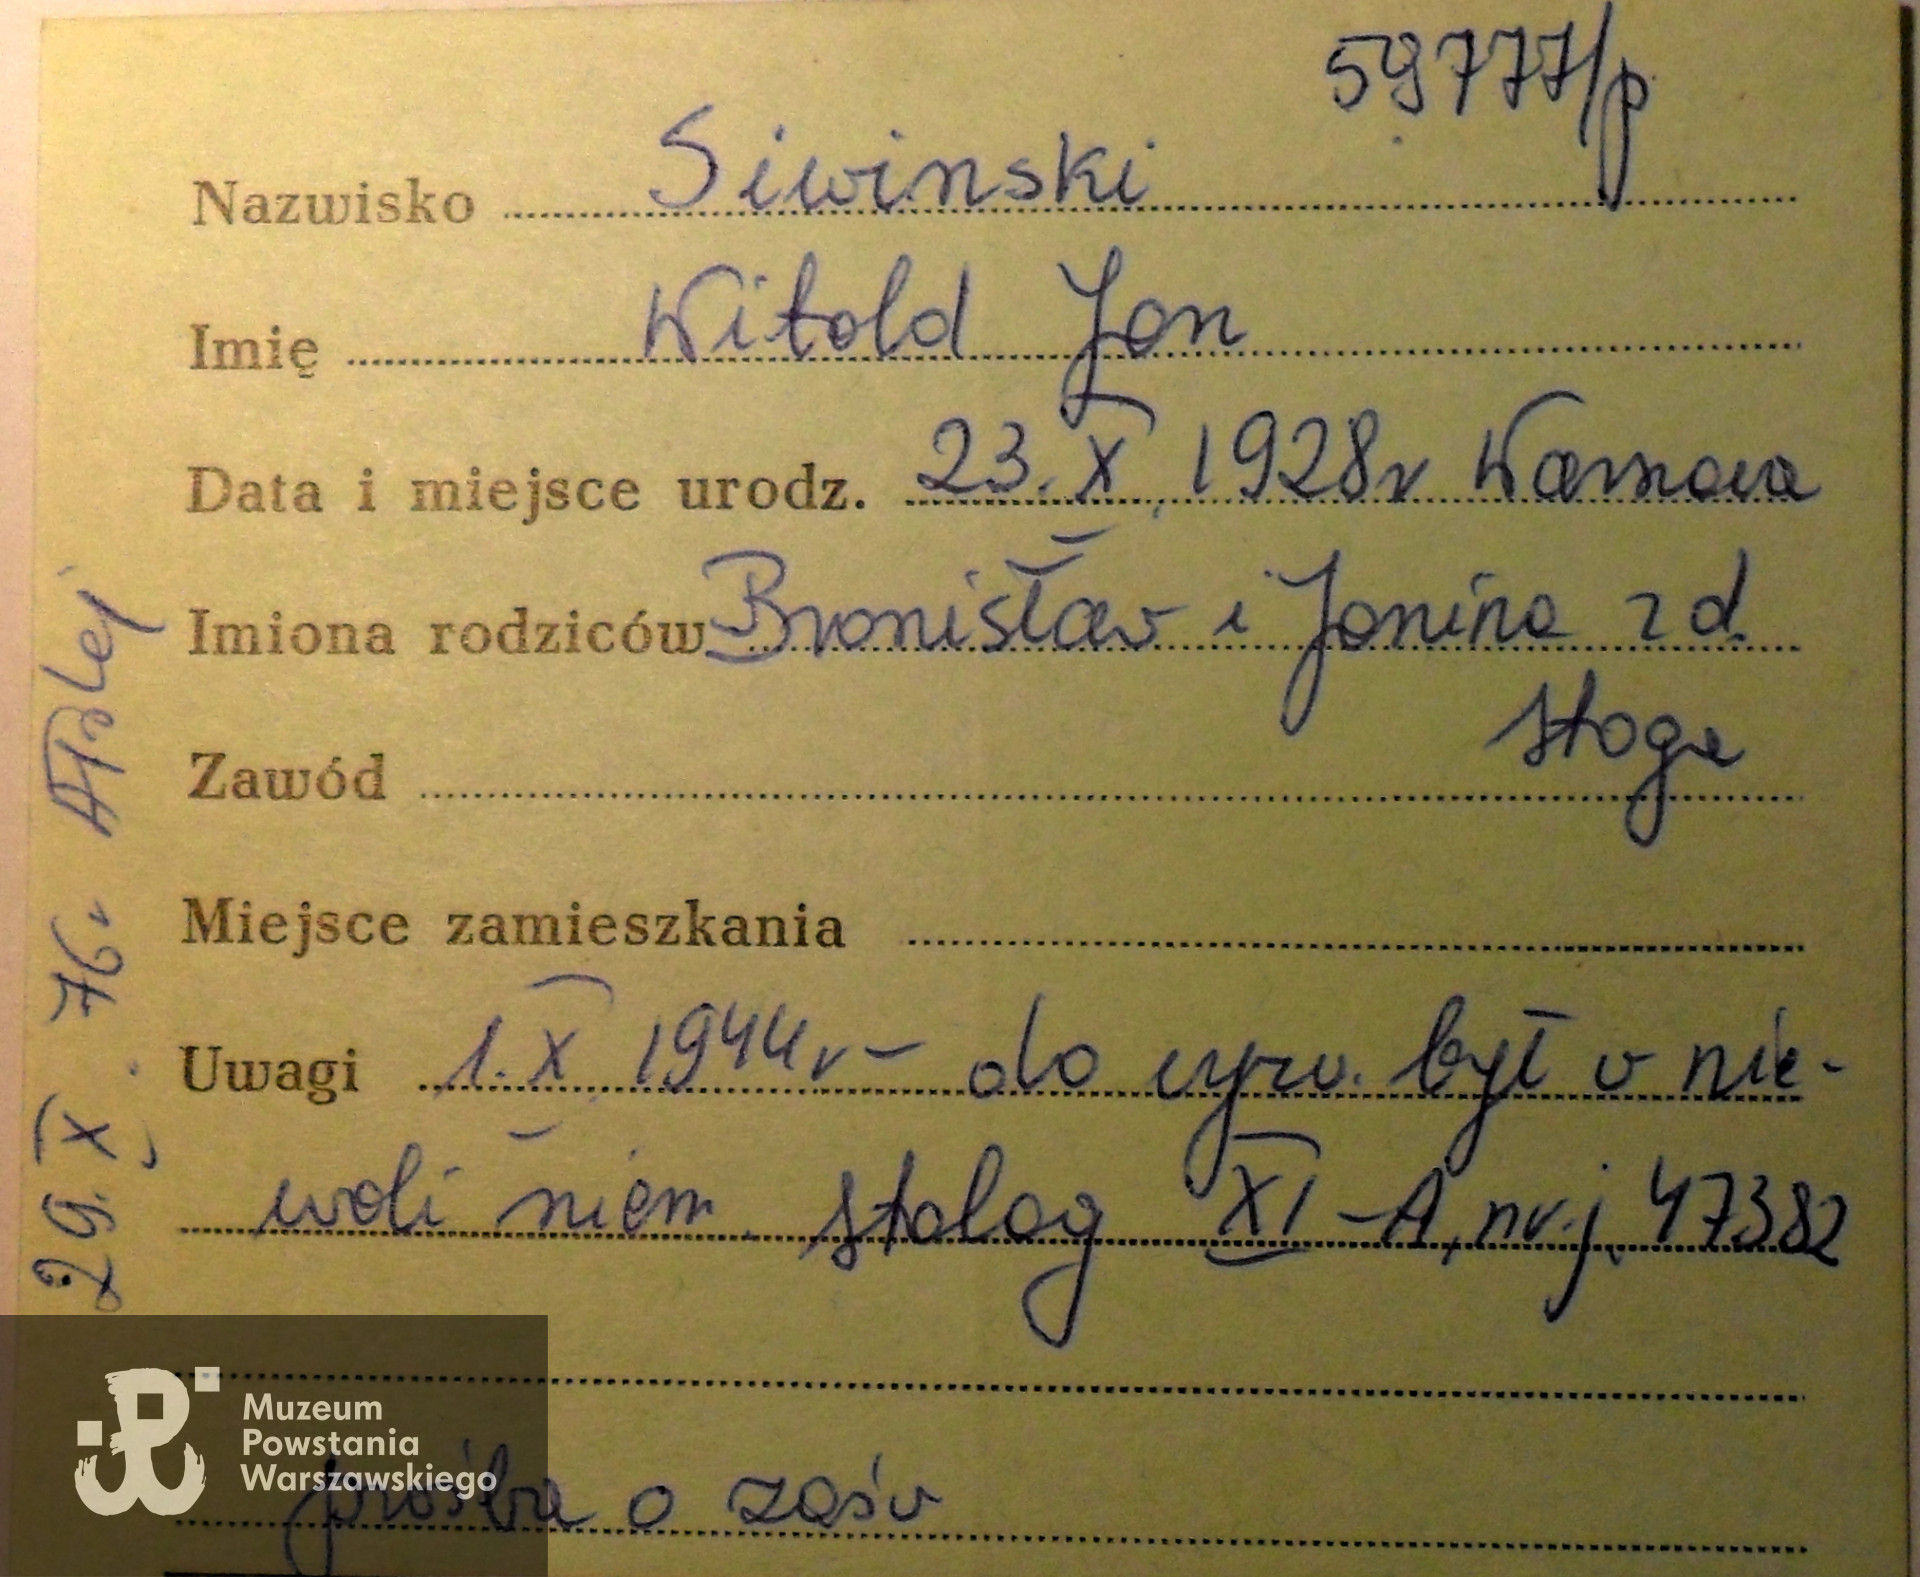 59777/p
Nazwisko Siwinski
Imię Witold Jan
Data i miejsce urodz. 23. X 1928r Warszawa
Imiona rodziców Bronisław i Janina z d.
Stoga
Zawód
Miejsce zamieszkania
Uwagi 1. X 1944r – do wyzw. był w nie-
woli niem. stalag XI-A, nr. j. 47382
prośba o zaśw
29. X. 76r
Muzeum
Powstania
Warszawskiego